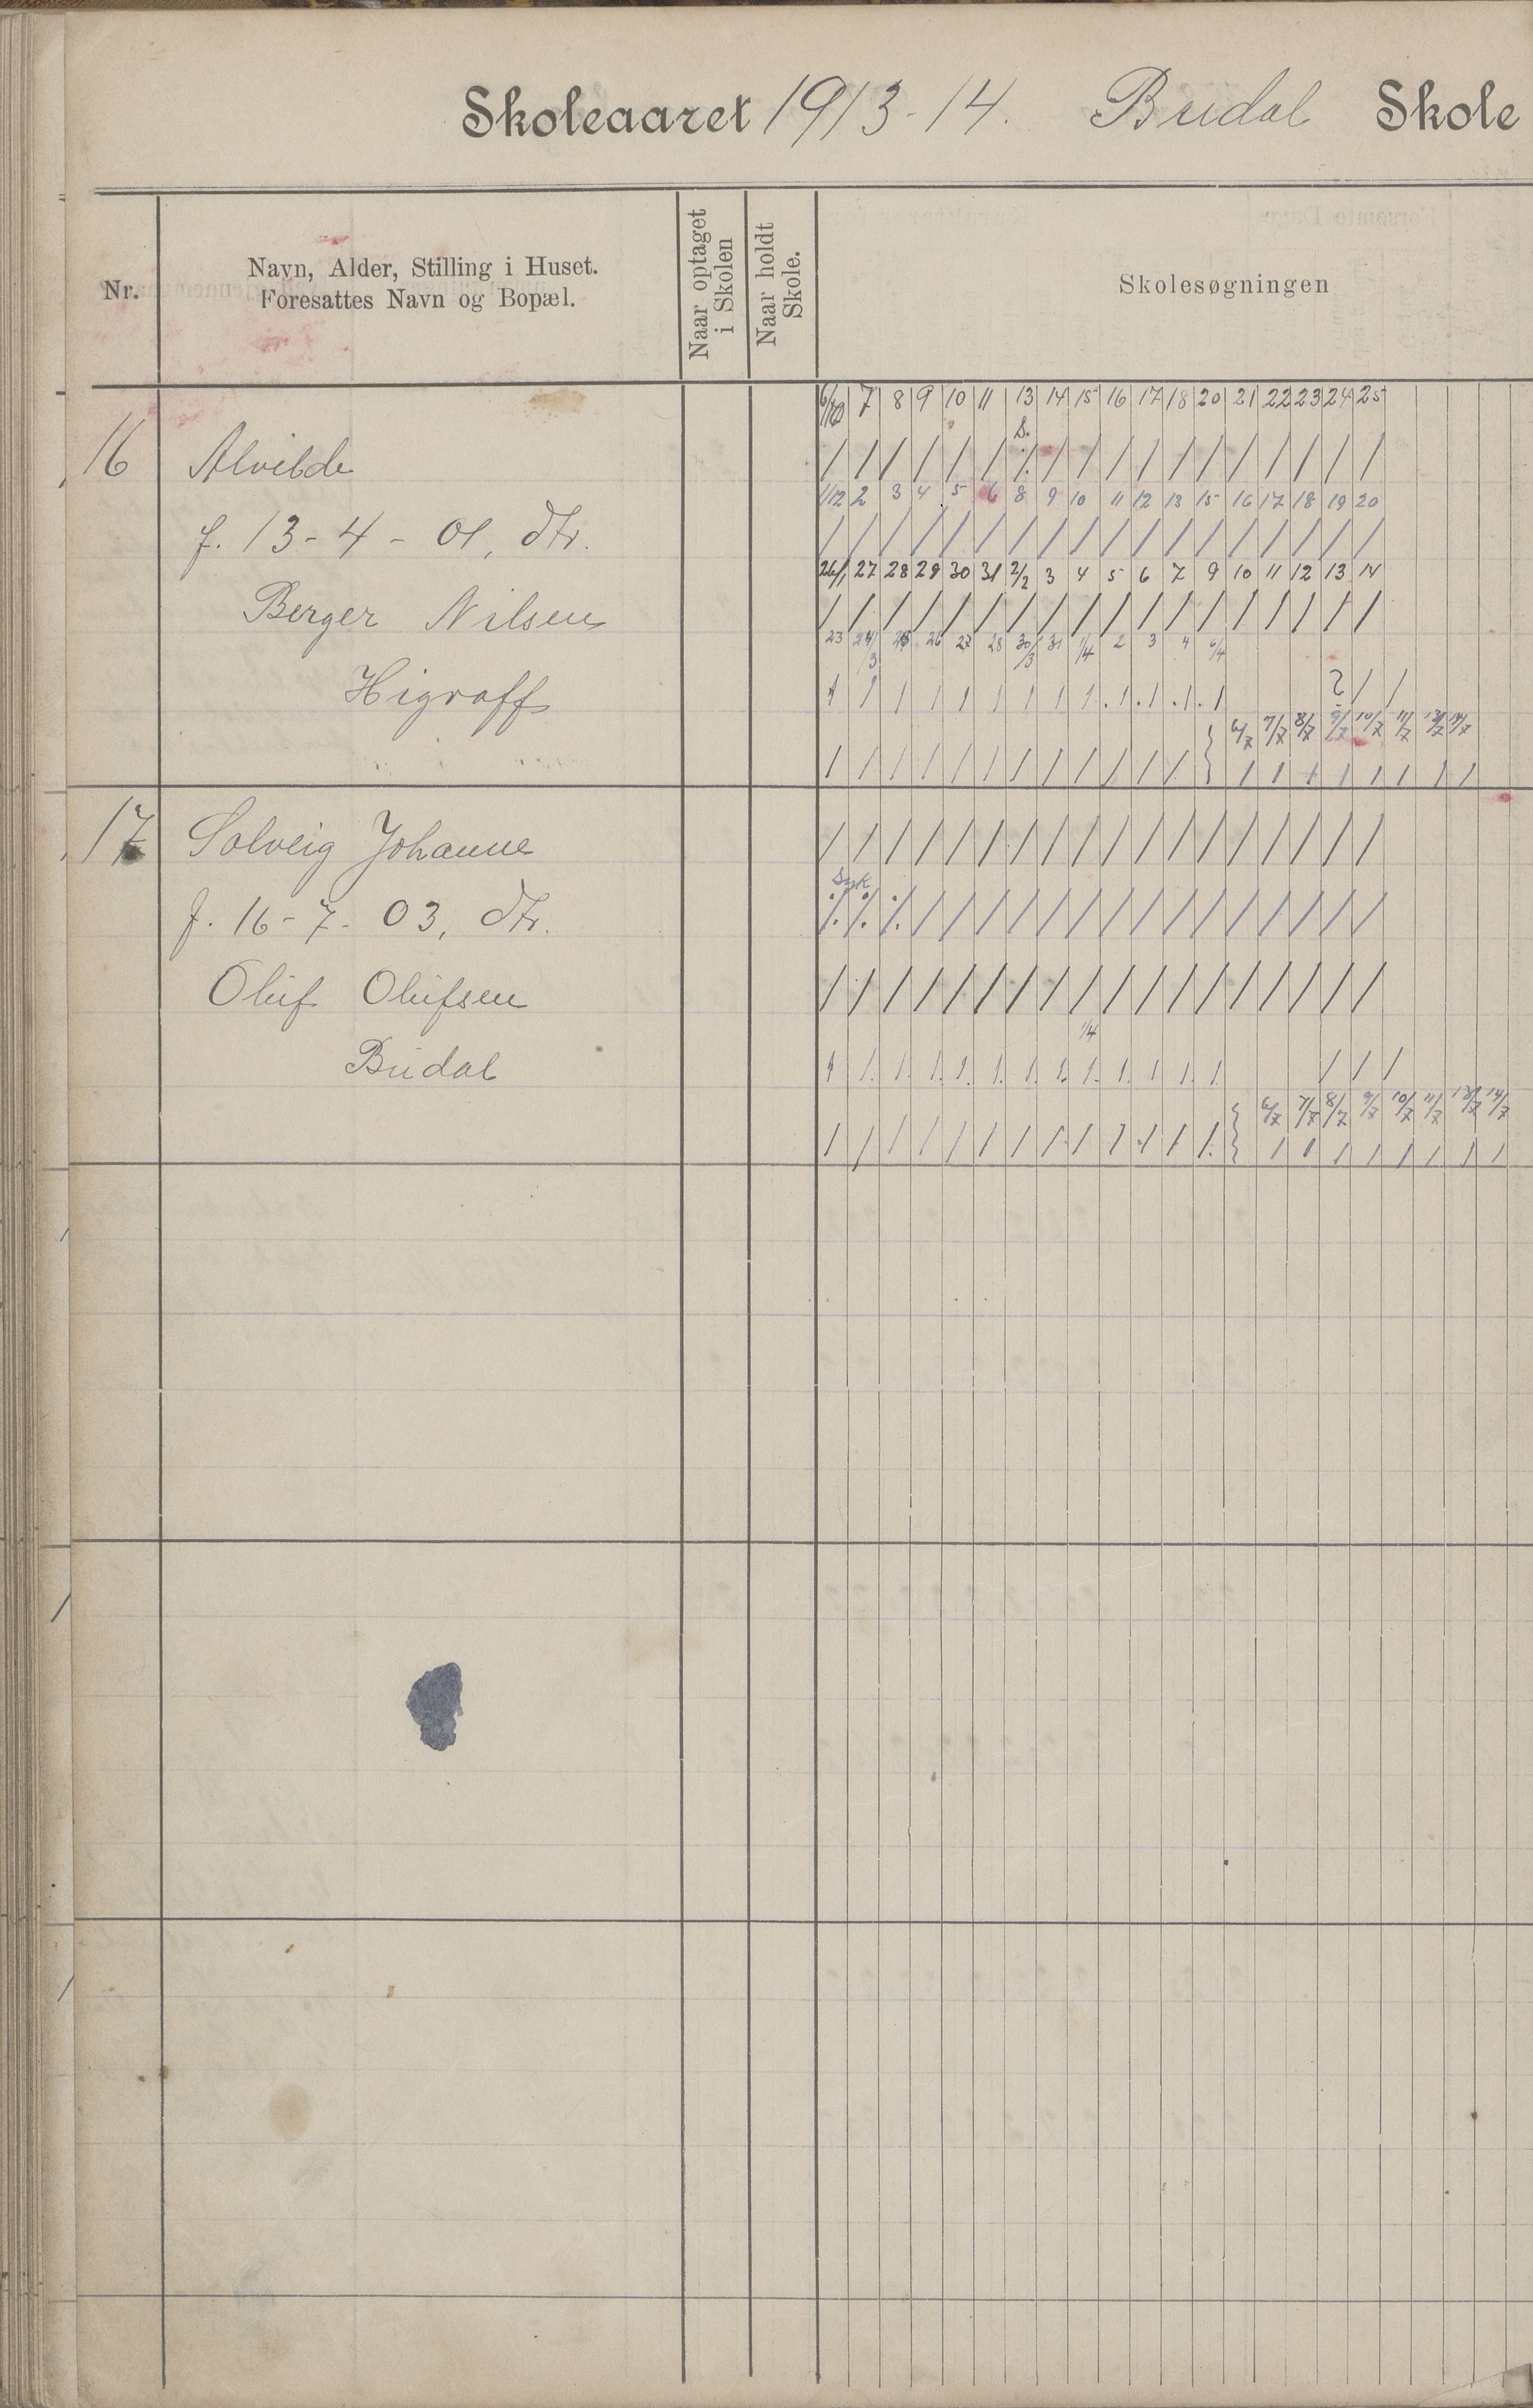 Skoleaaret 1913-14. Budal Skole
Nr.
Navn, Alder, Stilling i Huset.
Foresattes Navn og Bopæl.
Naar optaget
i Skolen
Naar holdt
Skole.
Skolesøgningen
6/10 7 8 9 10 11 13 14 15 16 17 18 20 21 22 23 24 25
s.
16 Alvilde / / / / / / ./. / / / / / / / / / / /
1/12 2 3 4 5 6 8 9 10 11 12 13 15 16 17 18 19 20
f. 13-4-01, dtr. / / / / / / / / / / / / / / / / / /
26/1 27 28 29 30 31 2/2 3 4 5 6 7 9 10 11 12 13 14
Berger Nilsen / / / / / / / / / / / / / / / / / /
23 24/3 25 26 27 28 30/3 31 1/4 2 3 4 6/4
Higraff / / / / / / / / / / / / / 2 / /
6/7 7/7 8/7 9/7 10/7 11/7 13/7 14/7
/ / / / / / / / / / / / / / / / / / / /
17 Solveig Johanne / / / / / / / / / / / / / / / / / /
Syk
f. 16-7-03, dtr. ./. ./. ./. / / / / / / / / / / / / / / /
Oluf Olufsen / / / / / / / / / / / / / / / / / /
1/4
Budal / / / / / / / / / / / / / / / /
6/7 7/7 8/7 9/7 10/7 11/7 13/7 14/7
/ / / / / / / / / / / / / / / / / / / / /